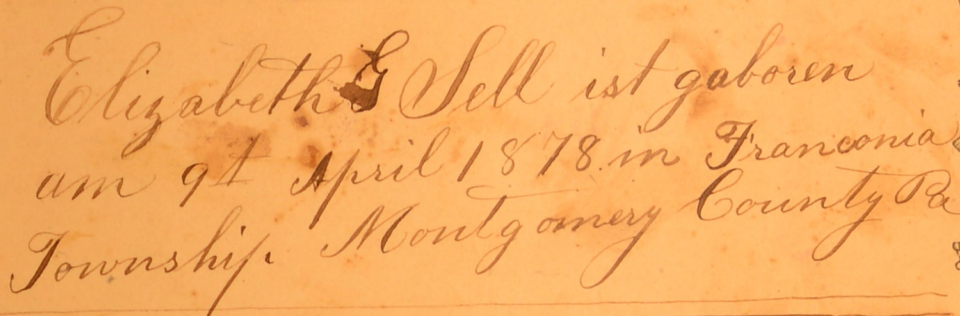 Elizabeth G Sell ist gaboren
am 9t April 1878 in Franconia
Township. Montgomery County Pa